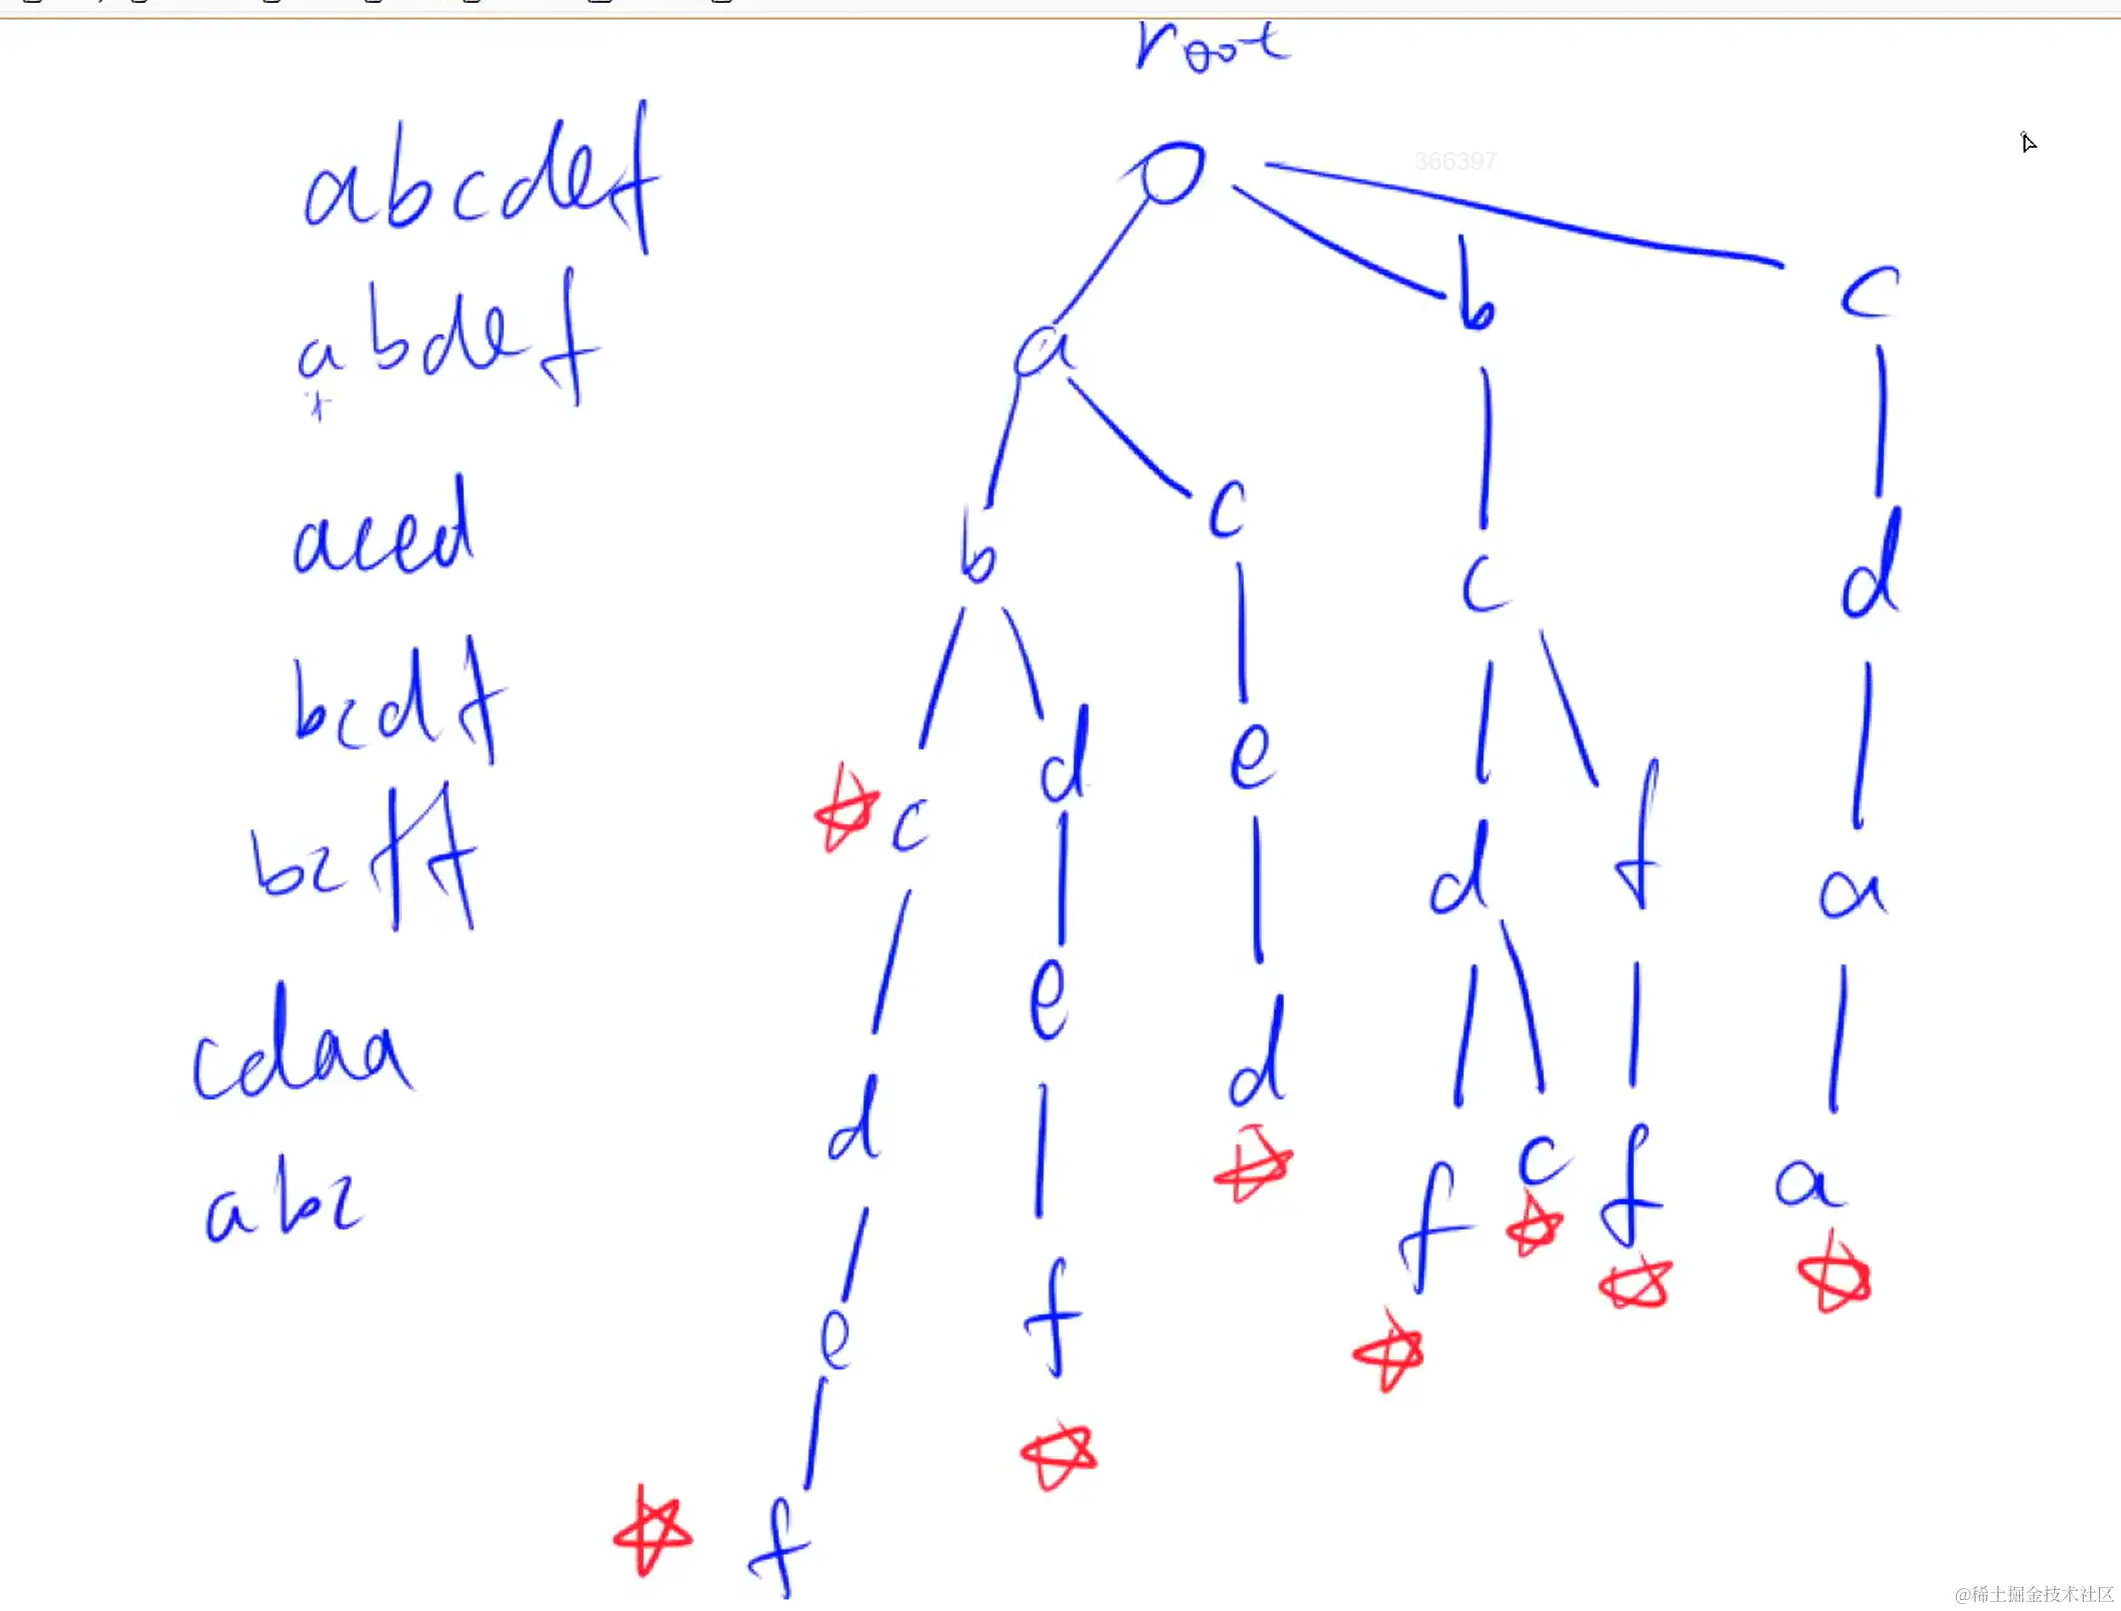 root
366397
abcdef
abdef
aced
bcdf
bcff
cdaa
abc
a b c
b c
c d
d e
c d e d f a
d e d f c f a
e f
f
@稀土掘金技术社区